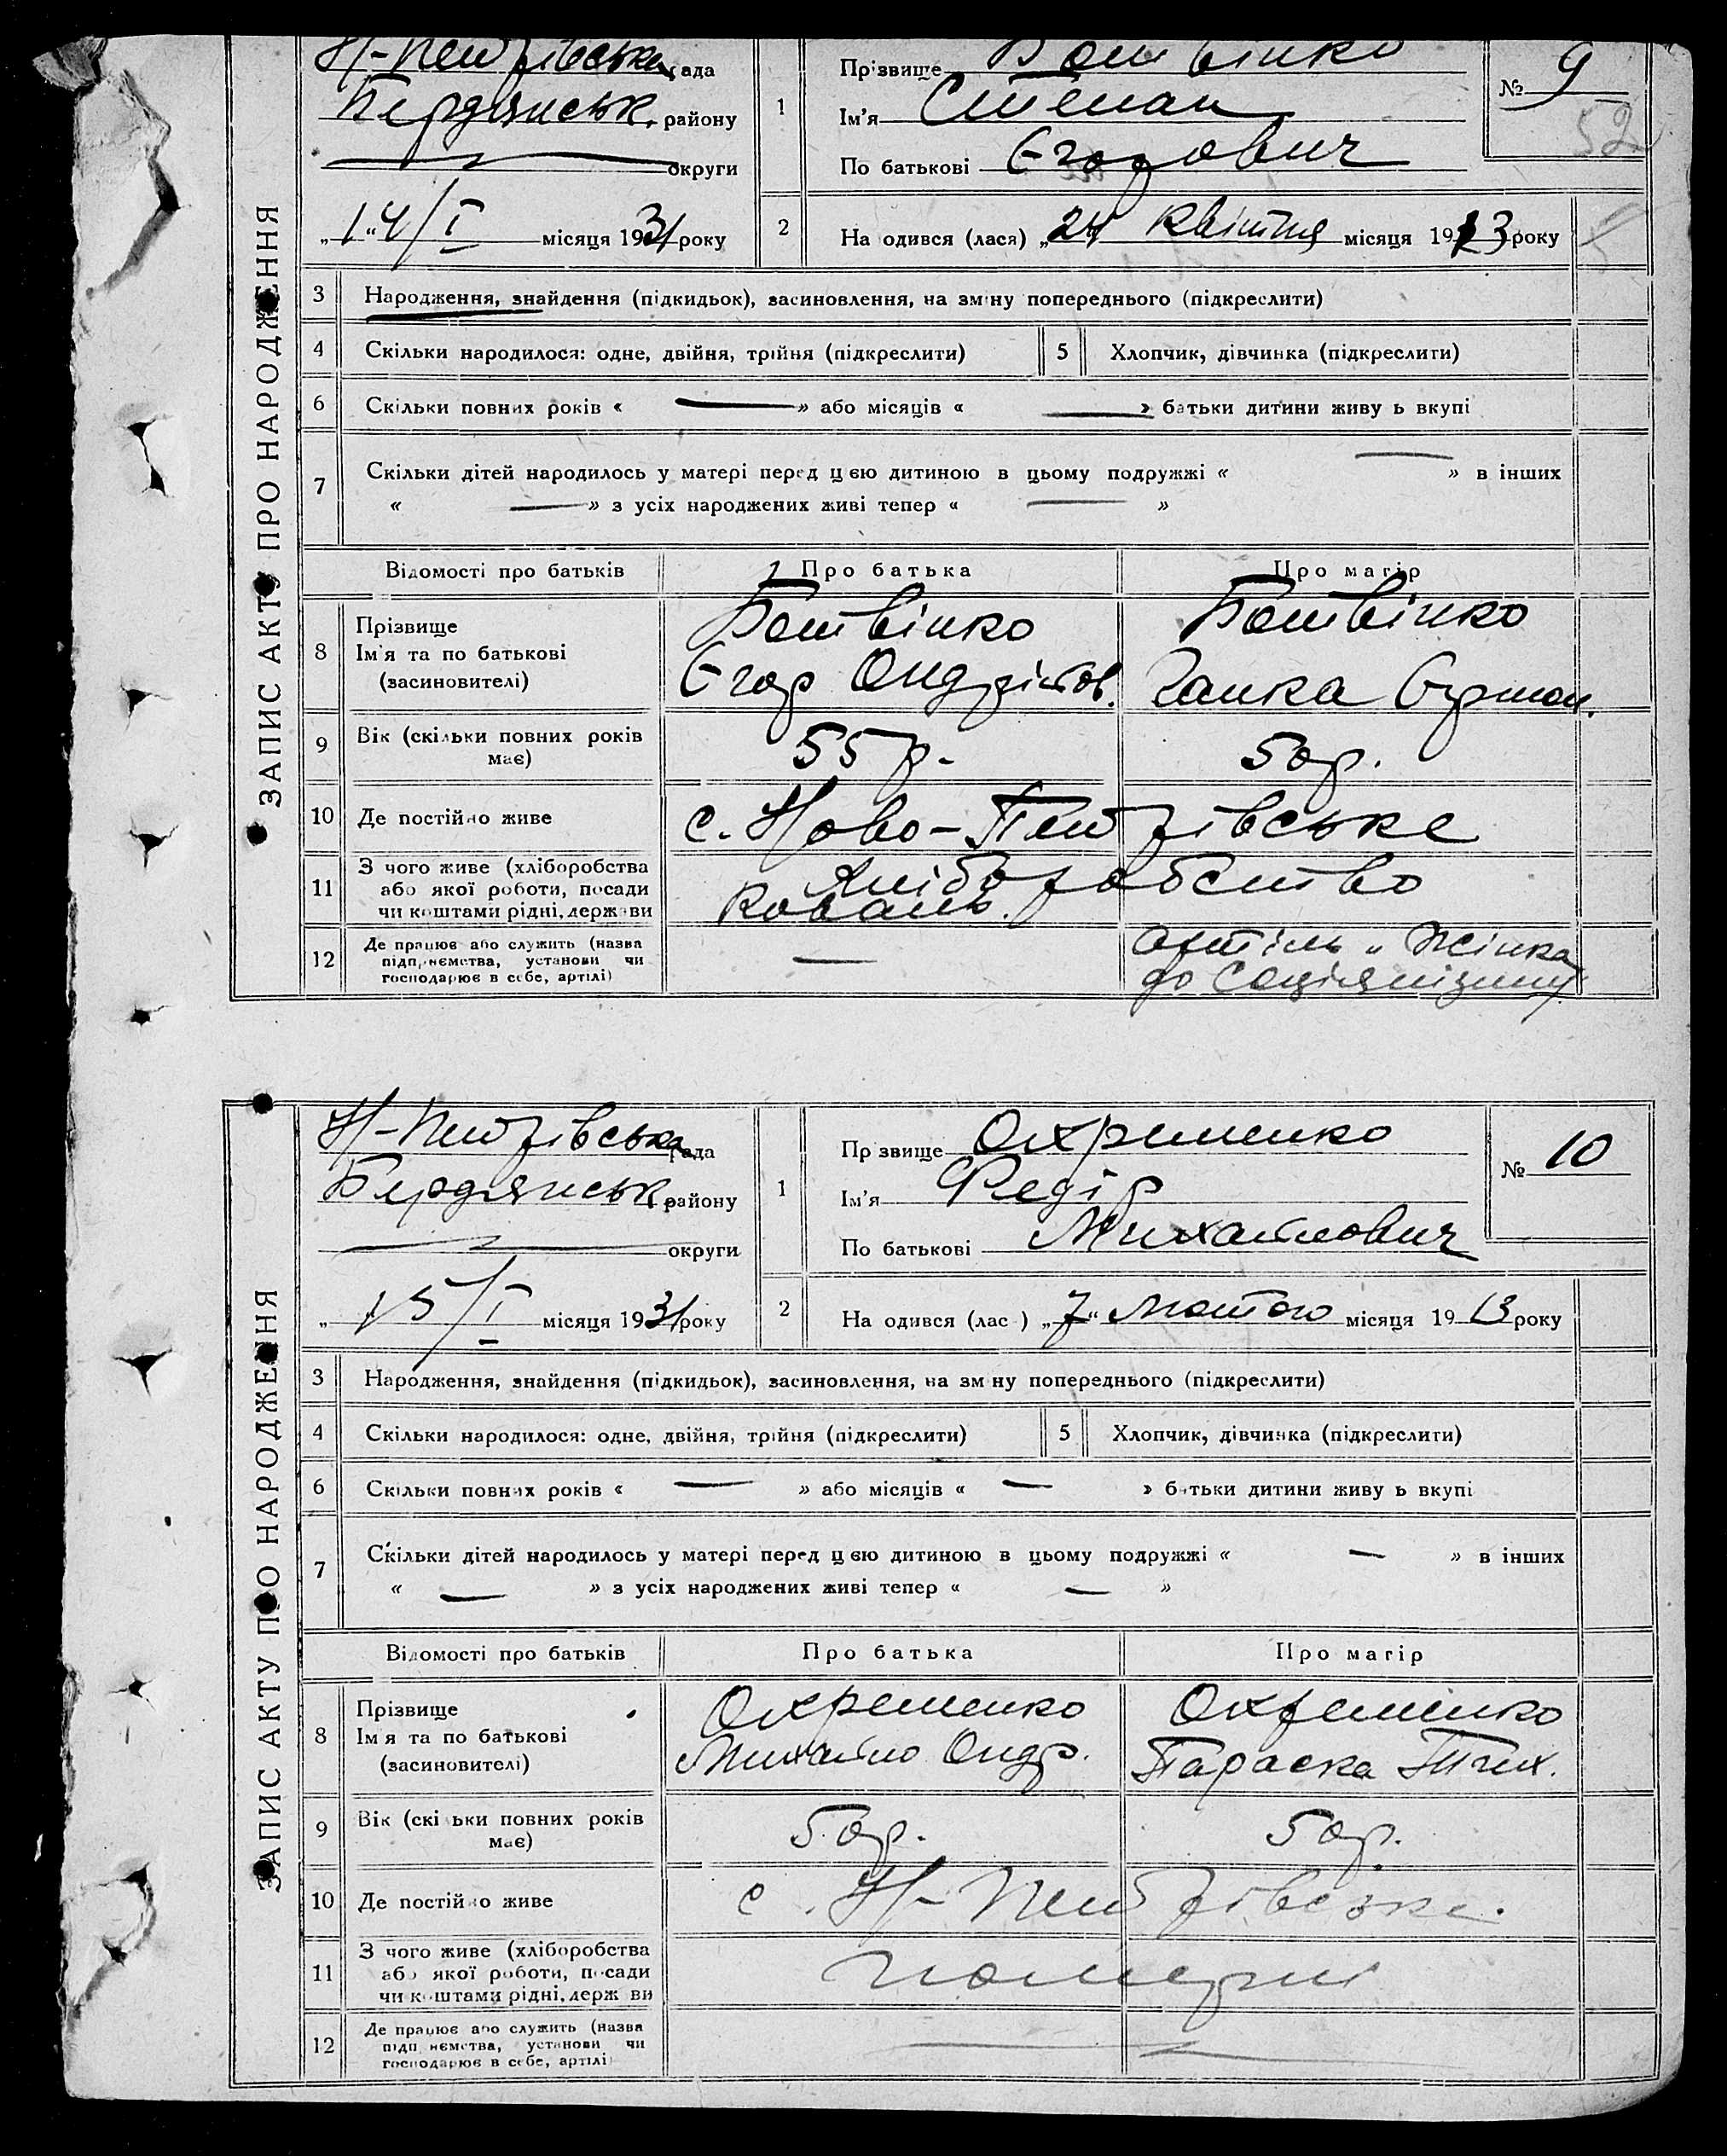 ЗАПИС АКТУ ПРО НАРОДЖЕННЯ
Н-Петрівська рада
Бердянськ. району
округи
„14/I місяця 1931 року
1
Прізвище Ботвінко
Ім'я Степан
По батькові Єгорович
№ 9
52
2 На одився (лася) „24 квітня місяця 1913 року
3 Народження, знайдення (підкидьок), засиновлення, на зміну попереднього (підкреслити)
4 Скільки народилося: одне, двійня, трійня (підкреслити) 5 Хлопчик, дівчинка (підкреслити)
6 Скільки повних років « — » або місяців « — » батьки дитини живу ь вкупі
7 Скільки дітей народилось у матері перед цєю дитиною в цьому подружжі « — » в інших
« — » з усіх народжених живі тепер « — »
Відомості про батьків Про батька Про матір
8 Прізвище
Ім'я та по батькові
(засиновителі)
Ботвінко
Єгор Ондрійов.
Ботвінко
Ганка
9 Вік (скільки повних років
має)
55 р. 50 р.
10 Де постійно живе с. Ново-Петрівське
11 З чого живе (хліборобства
або якої роботи, посади
чи коштами рідні, держави
Хліборобство
Коваль.
12 Де працює або служить (назва
підприємства, установи чи
господарює в себе, артілі)
—
Артіль „Жінка
до Соціялізму"
ЗАПИС АКТУ ПРО НАРОДЖЕННЯ
Н-Петрівська рада
Бердянськ. району
округи
„15/I місяця 1931 року
1
Пр звище Охрименко
Ім'я Федір
По батькові Михайлович
№ 10
2 На одився (лас ) „7" лютого місяця 1913 року
3 Народження, знайдення (підкидьок), засиновлення, на зм ну попереднього (підкреслити)
4 Скільки народилося: одне, двійня, трійня (підкреслити) 5 Хлопчик, дівчинка (підкреслити)
6 Скільки повних років « — » або місяців « — » батьки дитини живу ь вкупі
7 Скільки дітей народилось у матері перед цєю дитиною в цьому подружжі « — » в інших
« — » з усіх народжених живі тепер « — »
Відомості про батьків Про батька Про матір
8 Прізвище
Ім'я та по батькові
(засиновителі)
Охременко
Михайло Ондр.
Охременко
Параска Тих.
9 Вік (скі ьки повних років
має)
50р. 50р.
10 Де постійно живе с. Н-Петрівське.
11 З чого живе (хліборобства
або якої роботи, посади
чи коштами рідні, держ ви
померлі
12 Де працює або служить (назва
підп иємства, установи чи
господарює в себе, артілі)